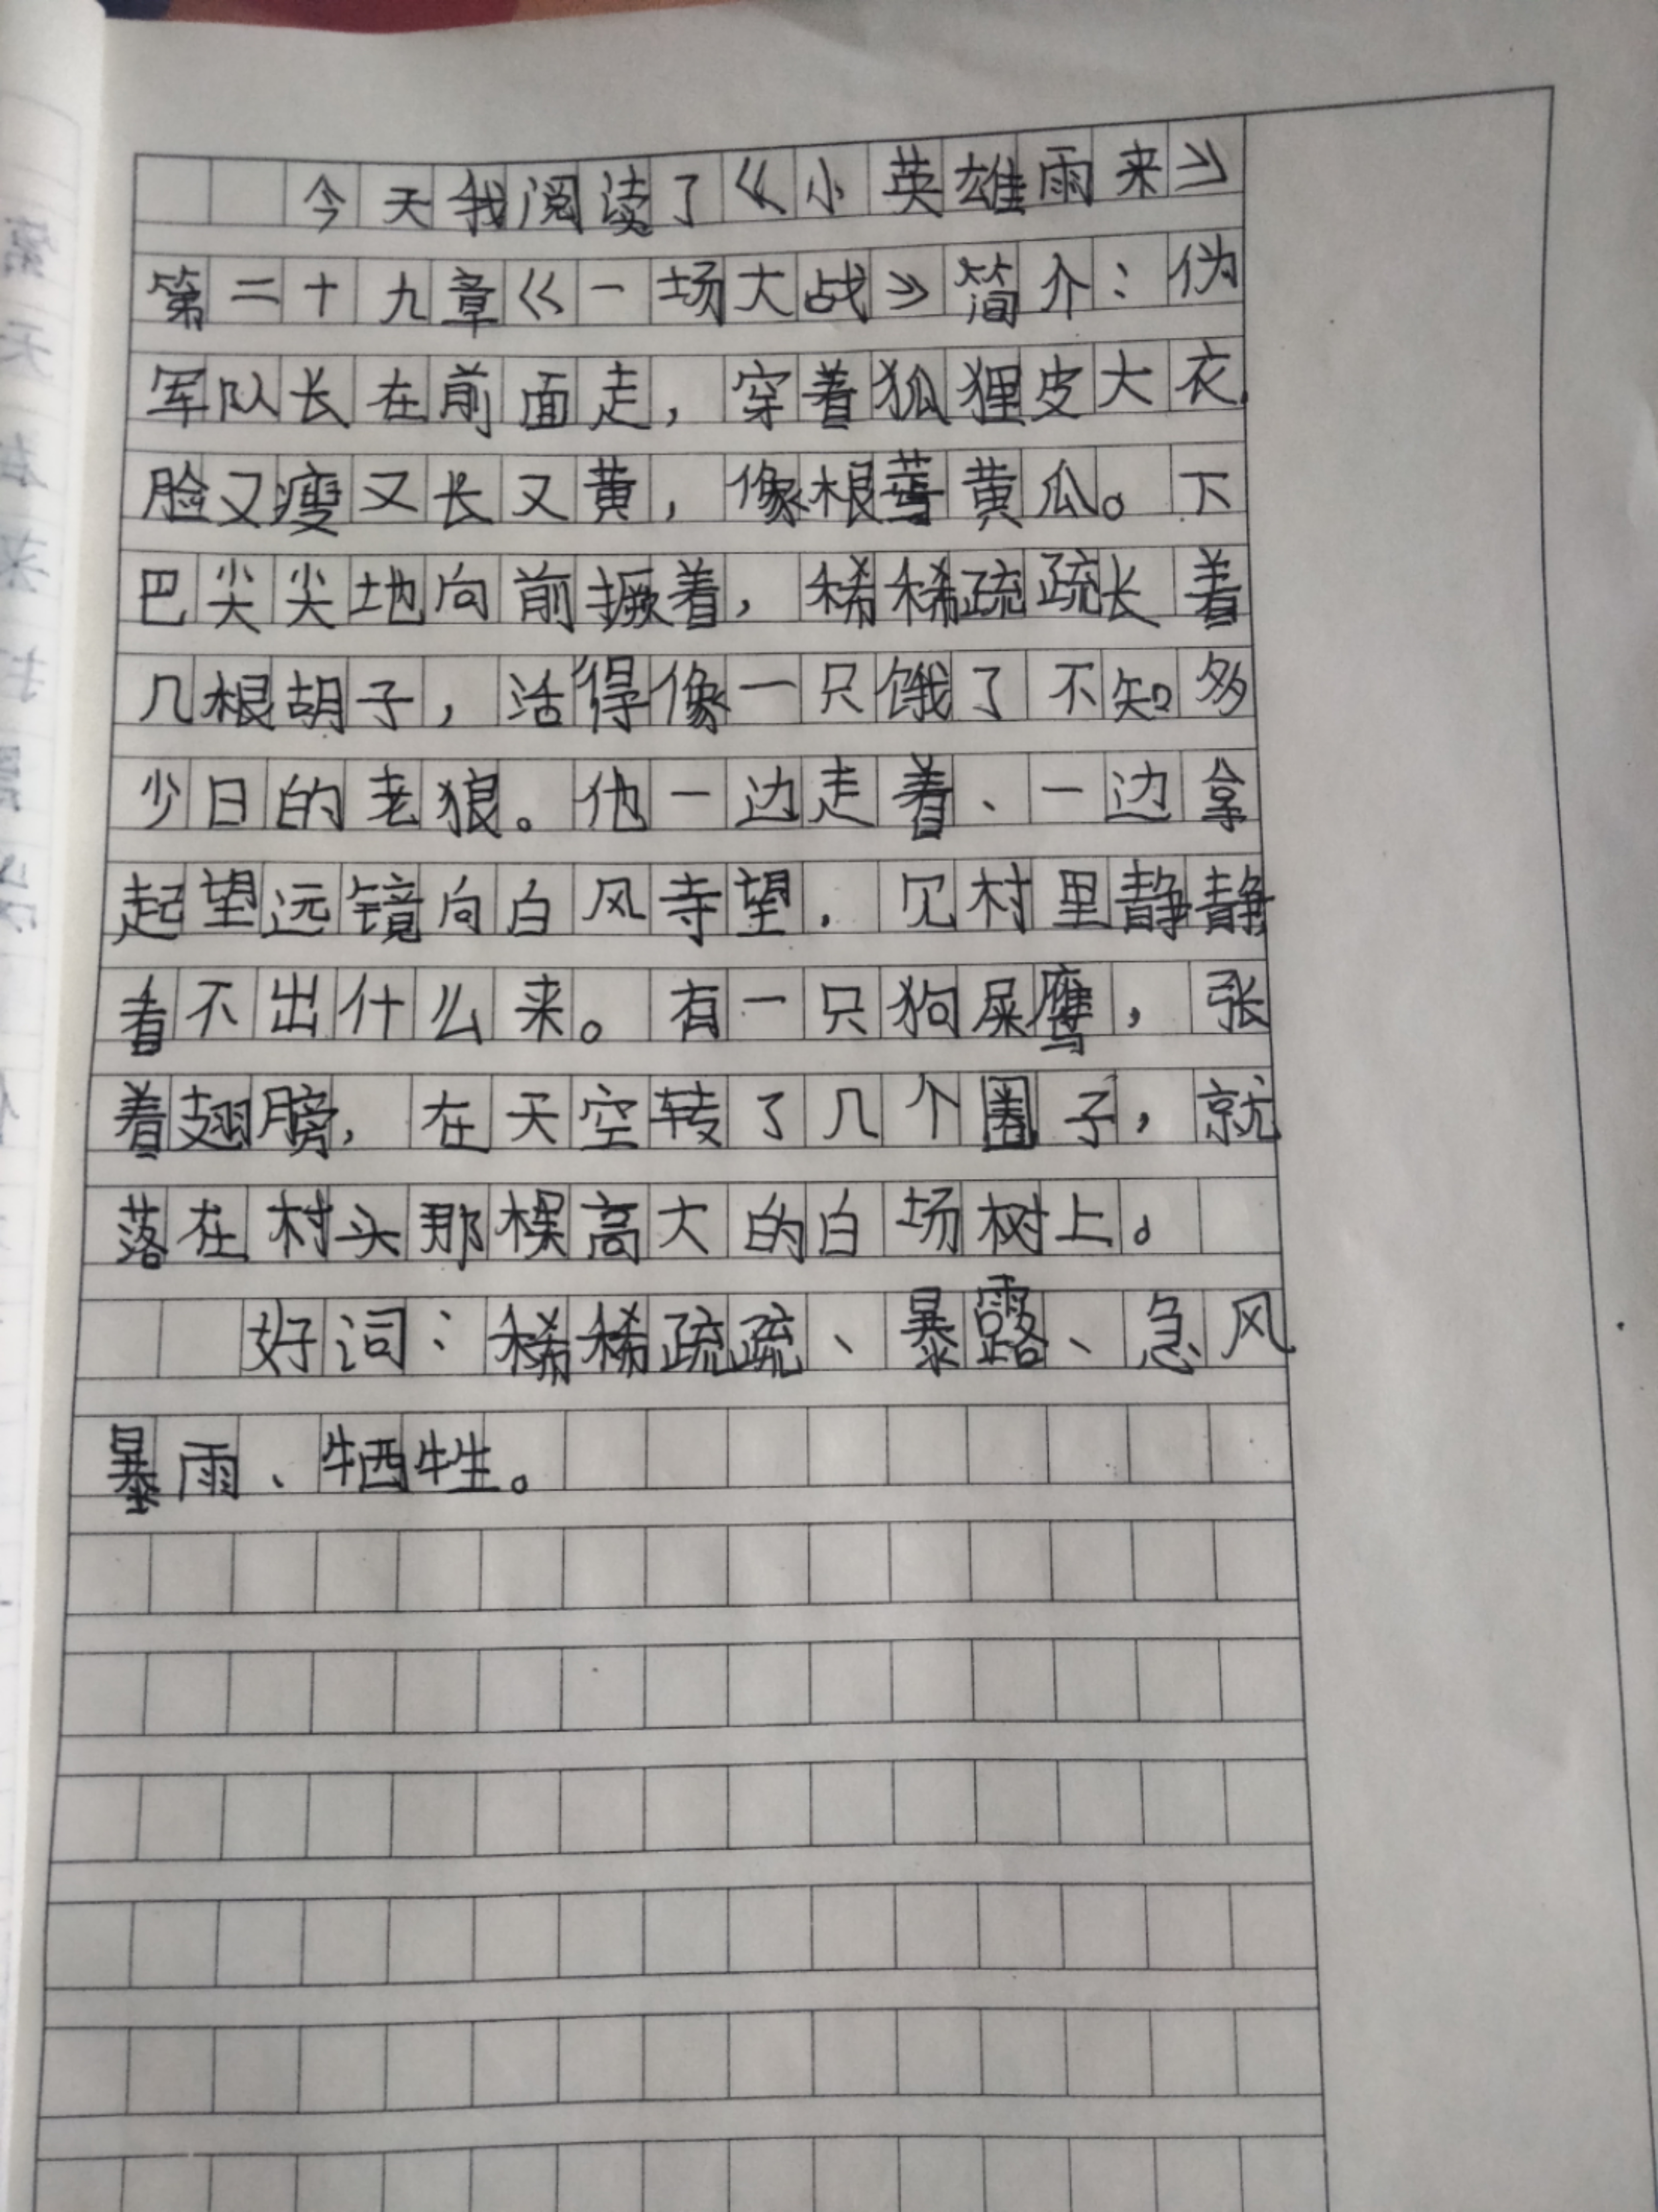 今天我阅读了《小英雄雨来》
第二十九章《一场大战》简介：伪
军队长在前面走，穿着狐狸皮大衣，
脸又瘦又长又黄，像根黄瓜。下
巴尖尖地向前撅着，稀稀疏疏长着
几根胡子，活得像一只饿了不知多
少日的老狼。他一边走着、一边拿
起望远镜向白风寺望，见村里静静
看不出什么来。有一只狗屎鹰，张
着翅膀，在天空转了几个圈子，就
落在村头那棵高大的白场树上。
好词：稀稀疏疏、暴露、急风
暴雨、牺牲。